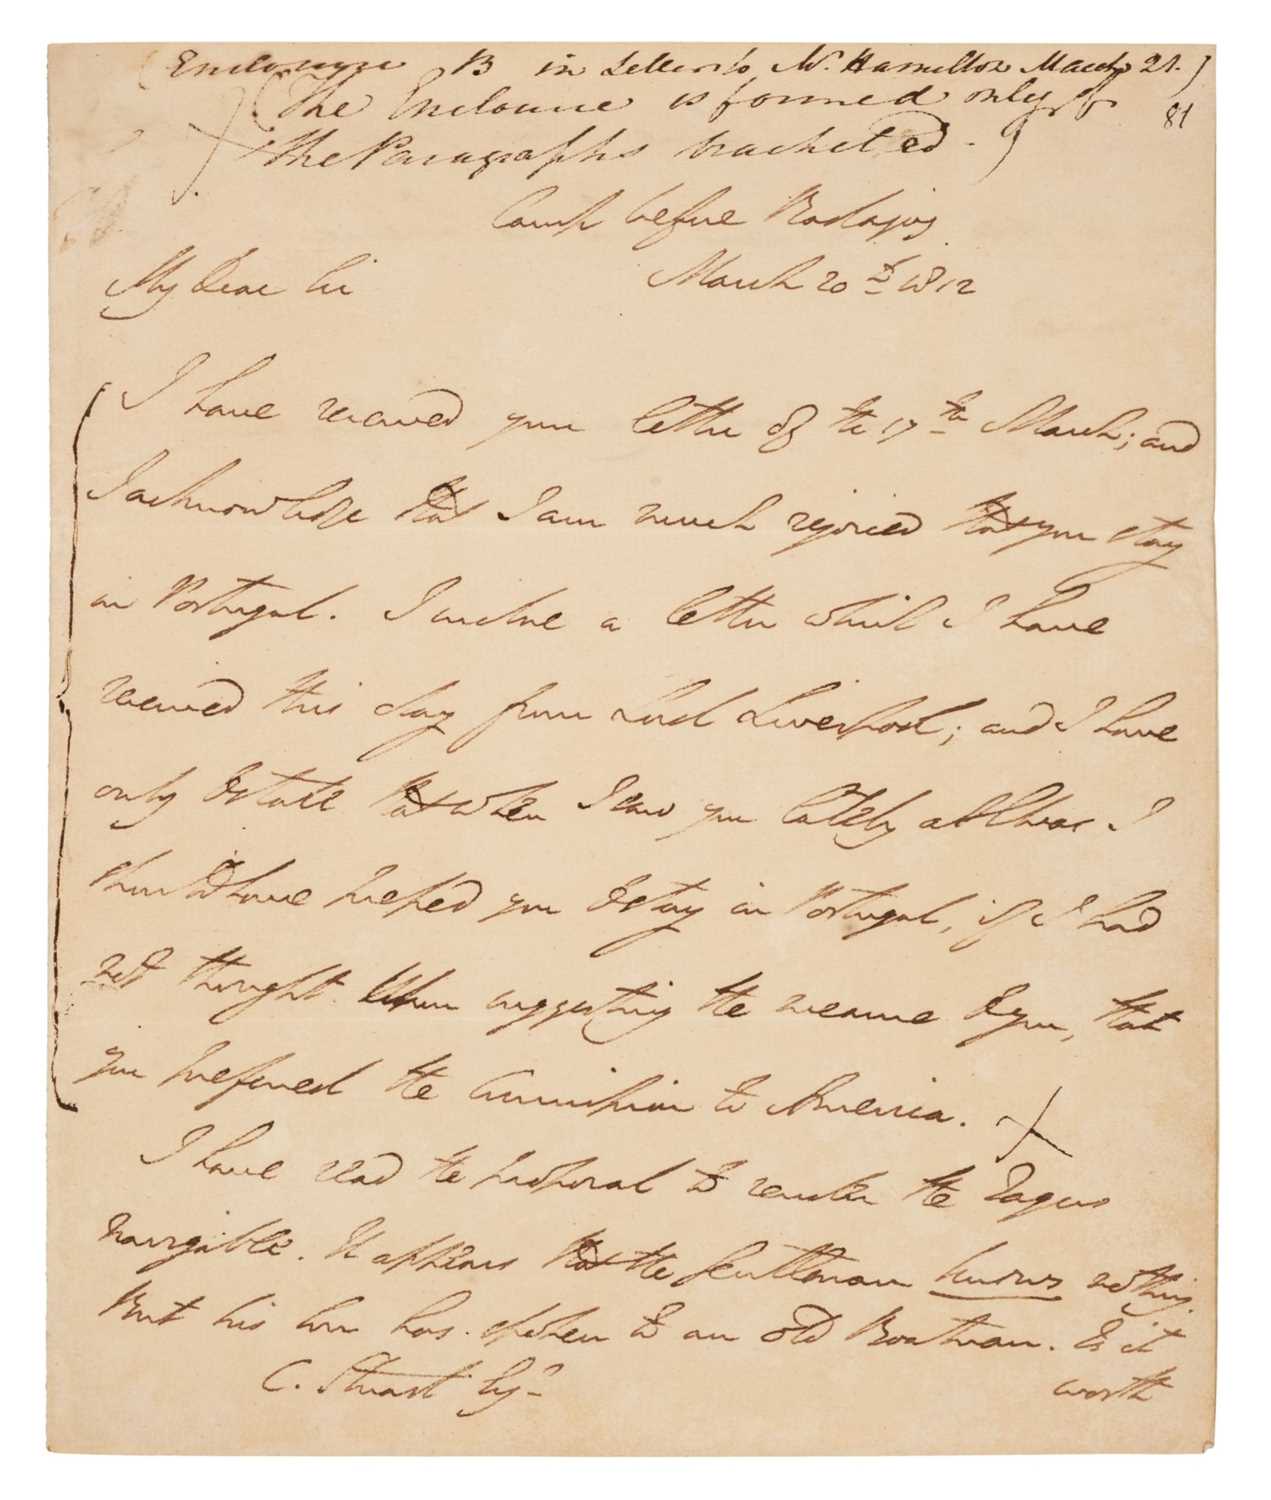 (Enclosure B in Letter to Mr. Hamilton March 21.)
(The Enclosure is formed only of
81
the Paragraphs bracketed.)
Camp before Badajoz
My Dear Sir March 20th 1812
I have received your letter of the 17th March; and
I acknowledge that I am much rejoiced that you stay
in Portugal. I enclose a letter which I have
received this day from Lord Liverpool; and I have
only to state that when I saw you lately at Elvas I
should have pressed you to stay in Portugal, if I had
not thought when suggesting the measure to you, that
you preferred the Commission to America.
I have read the proposal to render the Tagus
navigable. It appears that the Gentleman knows nothing.
But his son has spoken to an old Boatman. Is it
C. Stuart Esqr worth